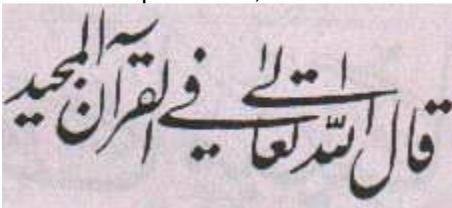 قال اللہ تعالےٰ فی القرآن المجید